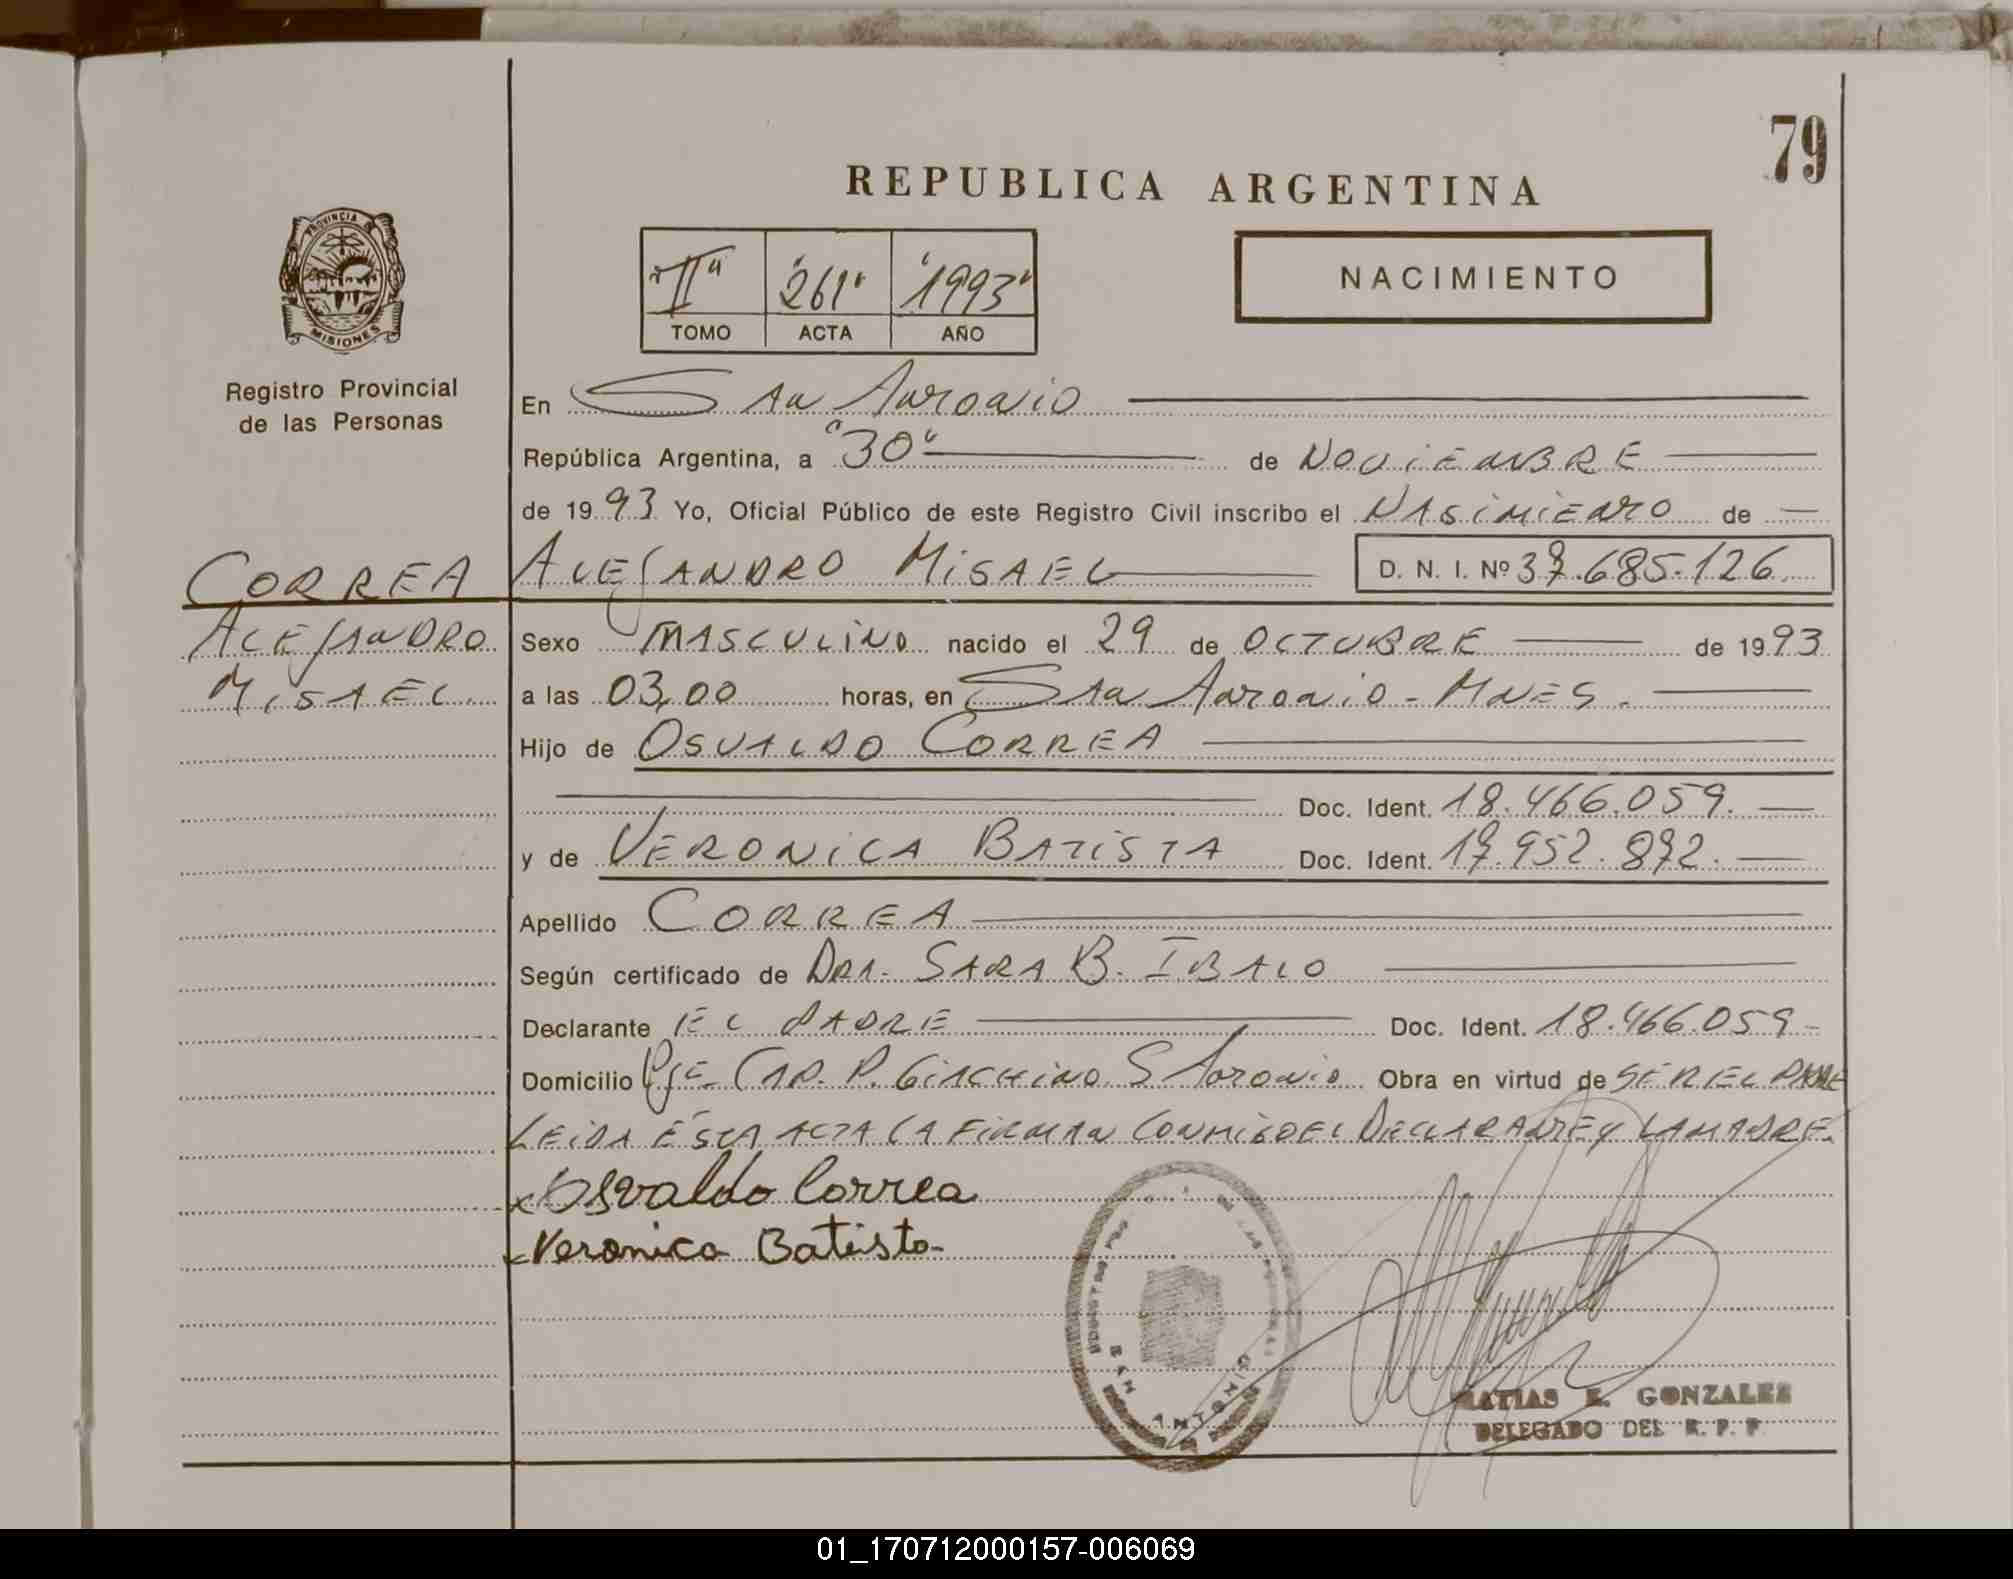 79
REPUBLICA ARGENTINA
"II" "261" "1993"
TOMO ACTA AÑO
NACIMIENTO
PROVINCIA DE
MISIONES
Registro Provincial
de las Personas
En San Antonio
República Argentina, a "30" de NOVIEMBRE
de 1993 Yo, Oficial Público de este Registro Civil inscribo el NASIMIENTO de
CORREA ALEJANDRO MISAEL D. N. I. Nº 37.685.126
ALEJANDRO Sexo MASCULINO nacido el 29 de OCTUBRE de 1993
MISAEL a las 03,00 horas, en San Antonio - MNES.
Hijo de OSVALDO CORREA
Doc. Ident. 18.466.059.
y de VERONICA BATISTA Doc. Ident. 17.952.872.
Apellido CORREA
Según certificado de DRA. SARA B. IBALO
Declarante EL PADRE Doc. Ident. 18.466.059
Domicilio Pje CAP. P. GIACHINO S Antonio Obra en virtud de SER EL PADRE
LEIDA ESTA ACTA LA FIRMAN CONMIGO EL DECLARANTE Y LA MADRE.
x Osvaldo Correa
x Veronica Batista
SAN ANTONIO
MATIAS E. GONZALEZ
DELEGADO DEL R. P. P
01_170712000157-006069